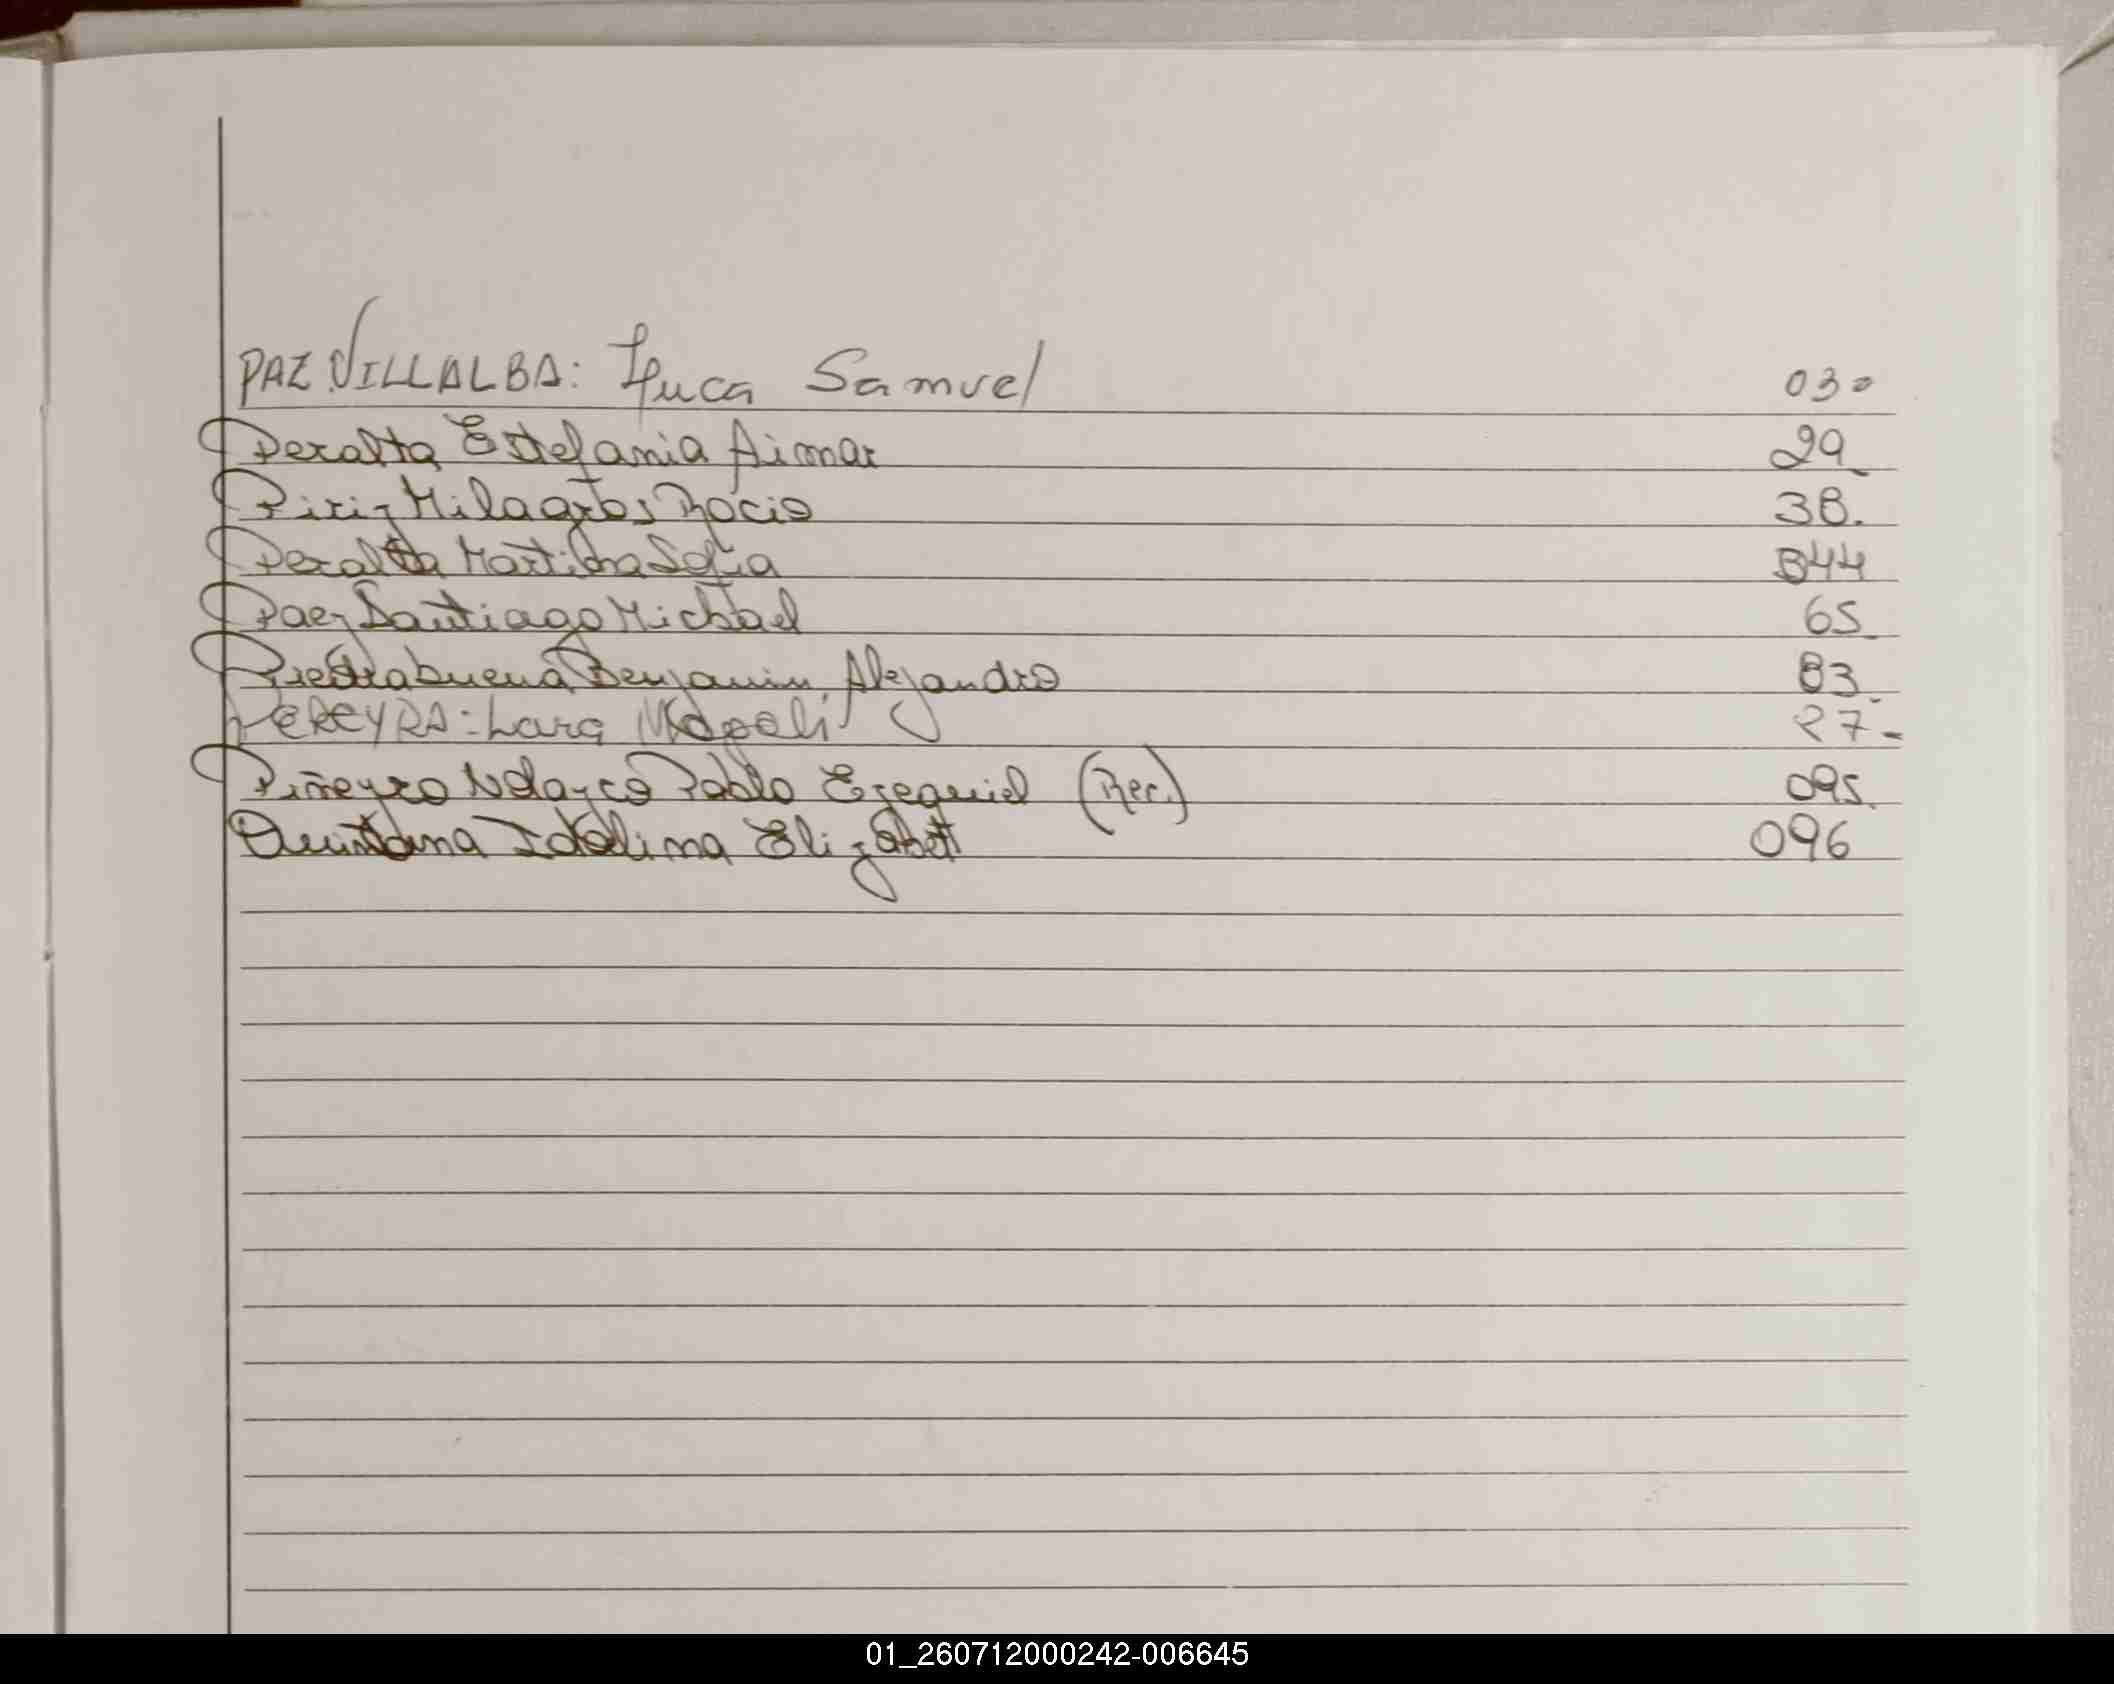 PAZ VILLALBA: Luca Samuel 030
Peralta Estefania Aimar 29
Piriz Milagros Rocio 38.
Peralta Martina Sofia 044
Paez Santiago Michael 65
Piedrabuena Benjamin Alejandro 83
PEREYRA: Lara Magali 27-
Piñeyro Pablo Ezequiel (Rec.) 095.
Quintana Idelima Elizabett 096
01_260712000242-006645